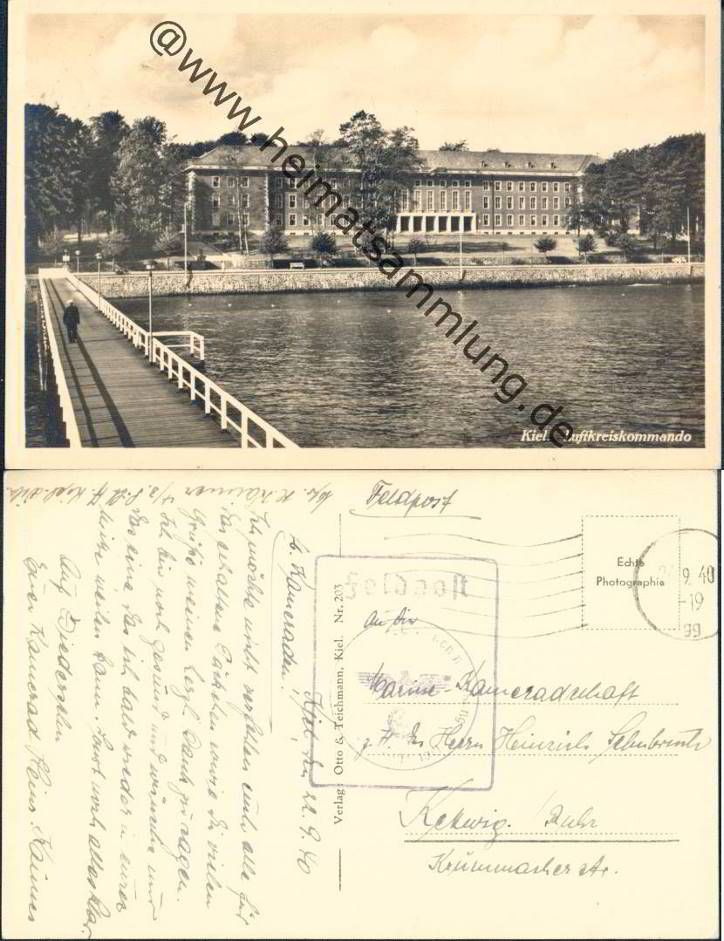 @www.heimatsammlung.de
Kiel. Luftkreiskommando
Feldpost
Echte
Photographie
9.40
-19
Feldpost
An die
Marine-Kameradschaft
z. H. des Herrn Heinrich
Kettwig. Ruhr
Krummacherstr.
Verlag: Otto & Teichmann, Kiel. Nr. 203
Kiel den 22.9.40
Lb. Kameraden!
Ich möchte nicht verfehlen euch alle für
das erhaltene Päckchen sowie die vielen
Grüße meinen herzl. Dank zu sagen.
Ich bin noch gesund und wünsche nur
das eine das ich bald wieder in eurer
Mitte weilen kann. Sonst noch alles klar.
Auf Wiedersehn
Euer Kamerad Heinr.